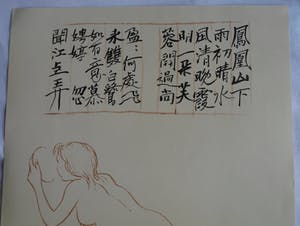 鳳凰山下
雨初晴水
風清晚霞
明一朵芙
蓉開過尚
盈:何處飛
来雙白鷺
如有意慕
娉婷忽
聞江上弄